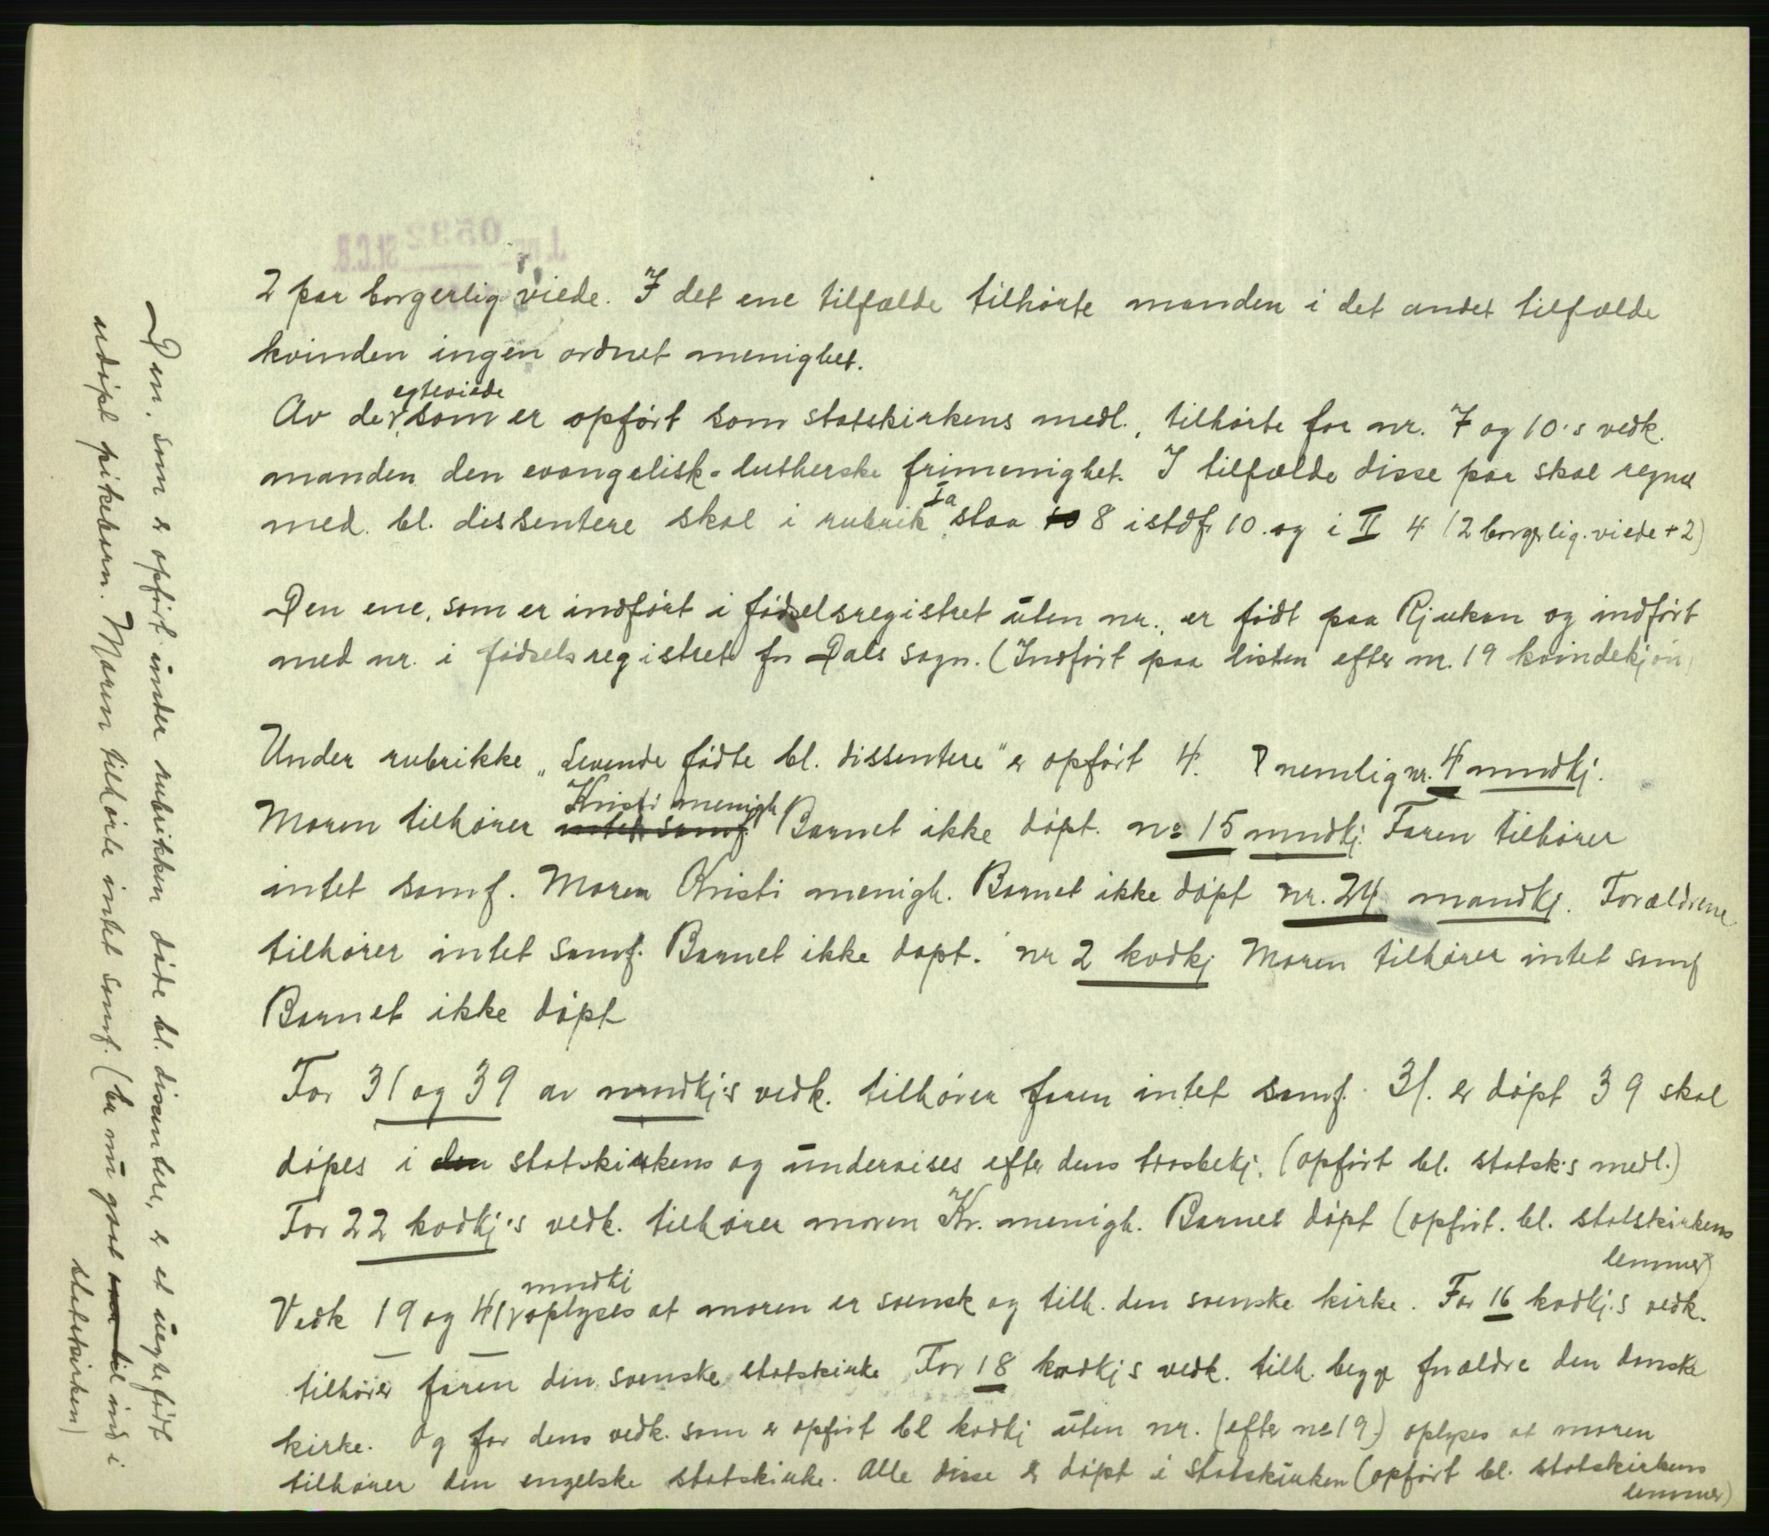 2 par borgerlig viede. I det ene tilfælde tilhørte manden i det andet tilfælde
kvinden ingen ordnet menighet.
egteviede
Av de som er opført som statskirkens medl., tilhørte for nr. 7 og 10's vedk.
manden den evangelisk-lutherske frimenighet. I tilfælde disse par skal regnes
med bl. dissentere skal i rubrik Ia staa 8 istdf. 10. og i II 4 (2 borgerlig. viede + 2)
Den ene, som er indført i fødselsregistret uten nr., er født paa Rjukan og indført
med nr. i fødselsregistret for Dals sogn. (Indført paa listen efter nr. 19 kvindekjøn)
Under rubrikke „Levende fødte bl. dissentere" er opført 4. nemlig nr. 4 mndkj.
Kristi menigh
Moren tilhører intet samf. Barnet ikke døpt. nr 15 mndkj. Faren tilhører
intet samf. Moren Kristi menigh. Barnet ikke døpt nr. 24 mandkj. Forældrene
tilhører intet samf. Barnet ikke døpt. nr 2 kvdkj Moren tilhører intet samf
Barnet ikke døpt
For 31 og 39 av mndkj's vedk. tilhører faren intet samf. 31. er døpt 39 skal
døpes i den statskirkens og undervises efter dens trosbekj. (opført bl. statsk's medl.)
For 22 kvdkj's vedk. tilhører moren Kr. menigh. Barnet døpt (opført. bl. statskirkens
lemmer)
mndkj
Vedk 19 og 41 oplyses at moren er svensk og tilh. den svenske kirke. For 16 kvdkj.s vedk.
tilhører faren den svenske statskirke For 18 kvdkj s vedk. tilh. begge forældre den danske
kirke. Og for dens vedk. som er opført bl kvdkj uten nr. (efter no 19) oplyses at moren
tilhører den engelske statskirke. Alle disse er døpt i statskirken (opført bl. statskirkens
lemmer)
Den, som er opført under rubrikken døde bl. dissentere, er et uegtefødt
udøpt pikebarn. Moren tilhørte intet samf. (er nu gaat ind i
statskirken)